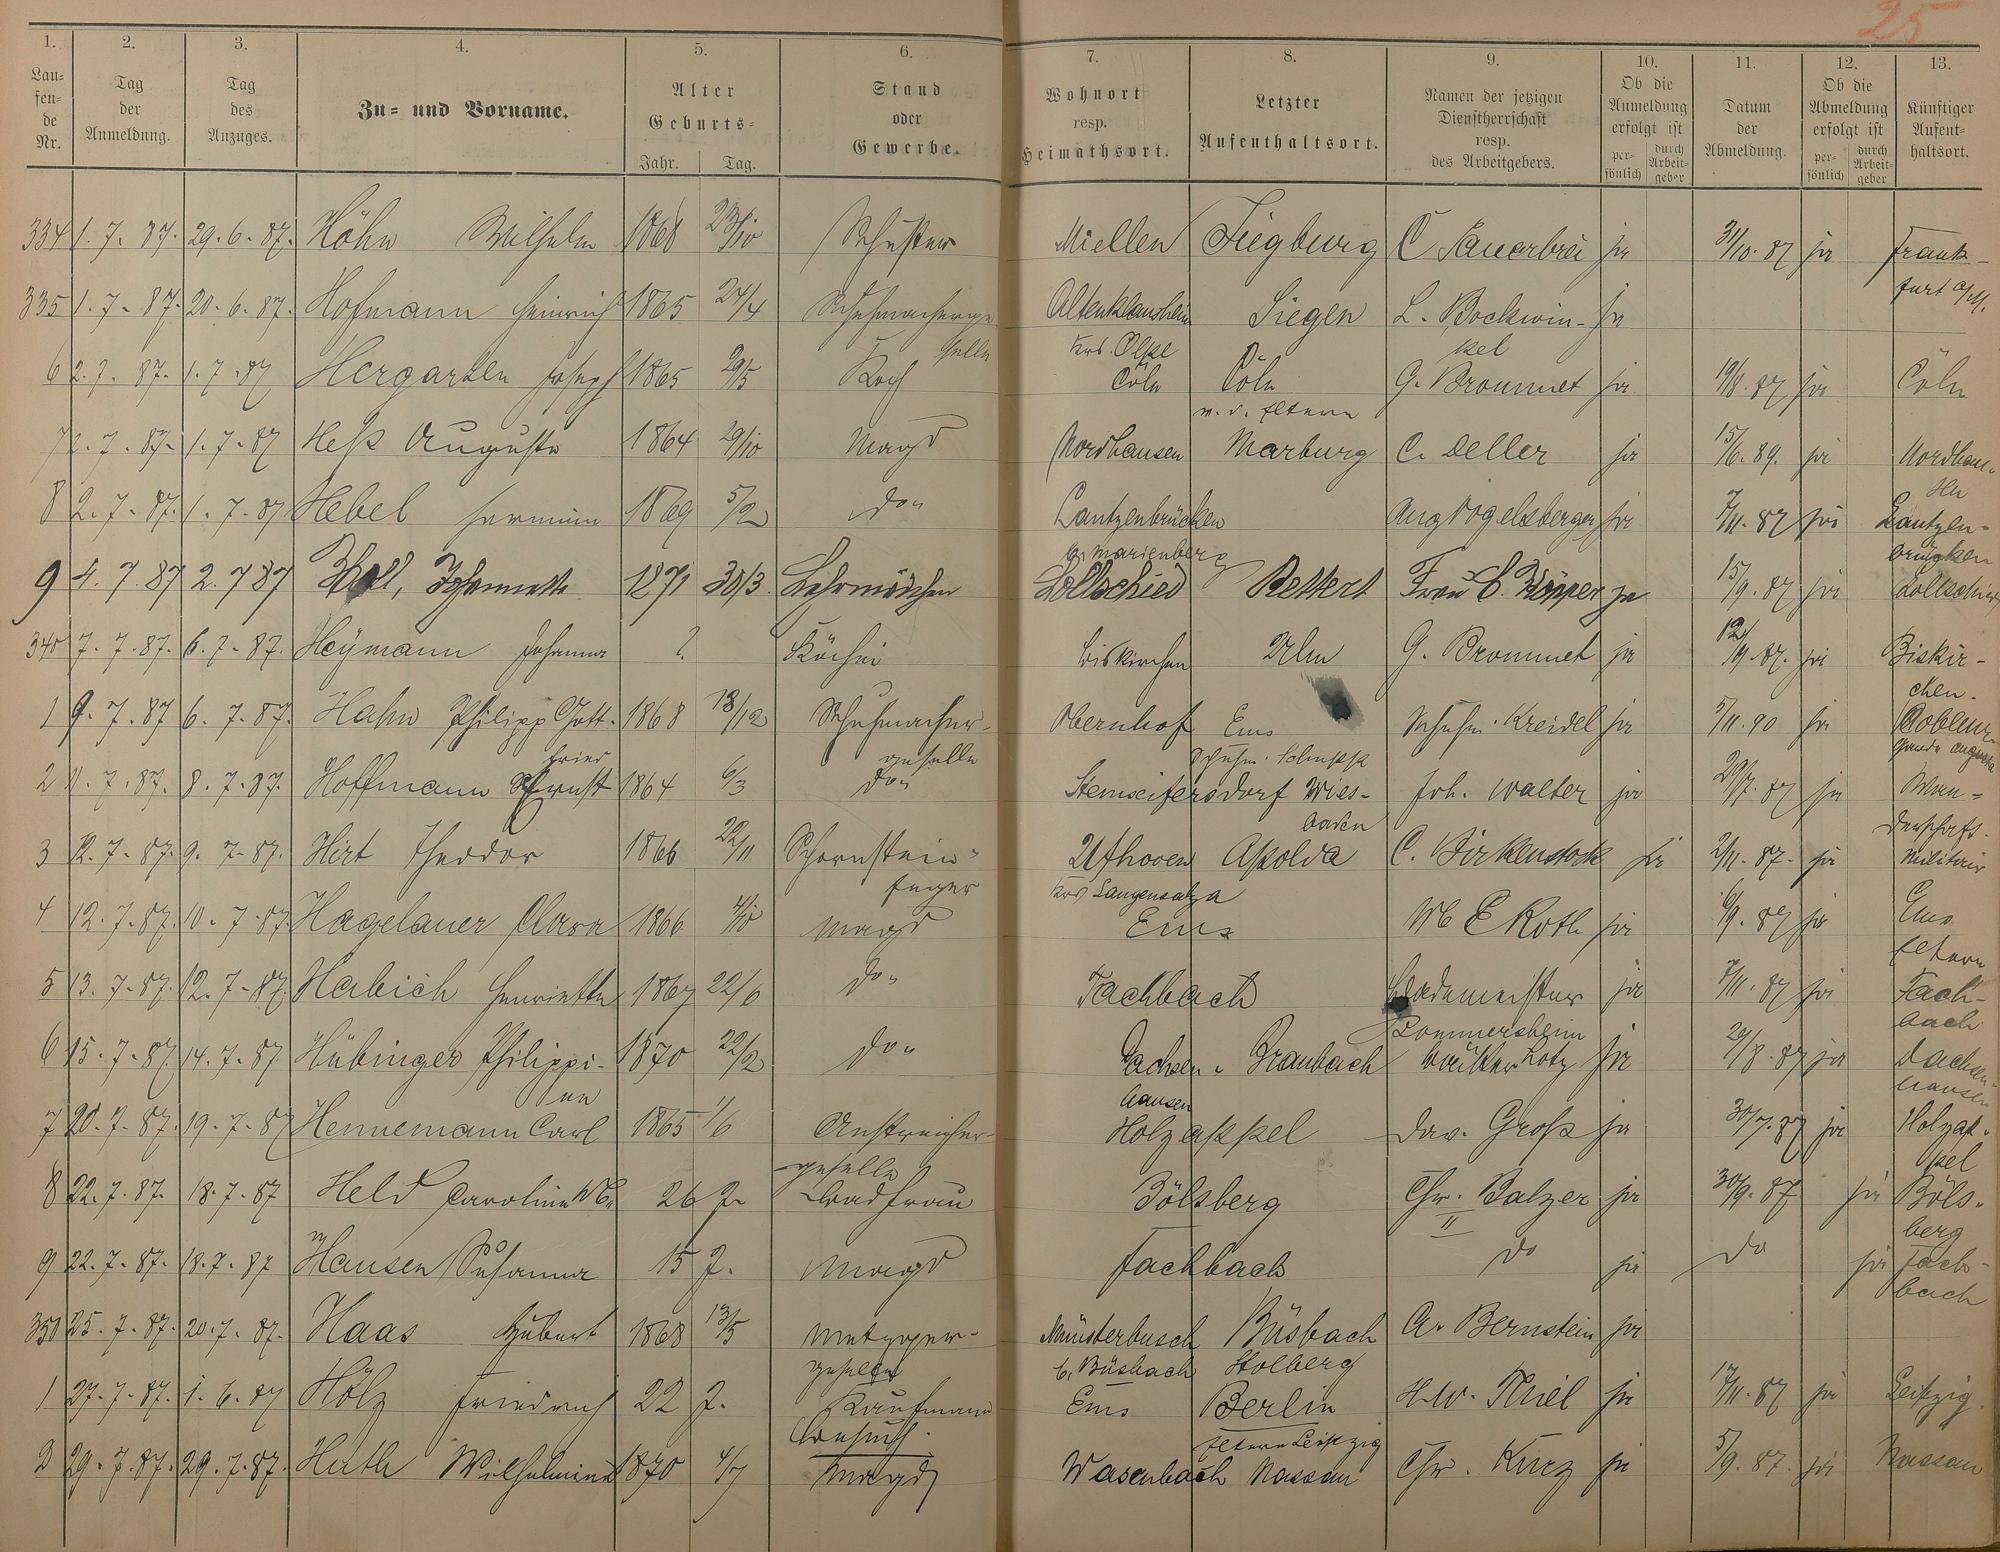 25
1. 2. 3. 4. 5. 6. 7. 8. 9. 10. 11. 12. 13.
Lau-
fen-
de
Nr.
Tag
der
Anmeldung.
Tag
des
Anzuges.
Zu- und Vorname.
Alter
Geburts-
Jahr. Tag.
Stand
oder
Gewerbe.
Wohnort
resp.
Heimathsort.
Letzter
Aufenthaltsort.
Namen der jetzigen
Dienstherrschaft
resp.
des Arbeitgebers.
Ob die
Anmeldung
erfolgt ist
per-
sönlich
durch
Arbeit-
geber
Datum
der
Abmeldung.
Ob die
Abmeldung
erfolgt ist
per-
sönlich
durch
Arbeit-
geber
Künftiger
Aufent-
haltsort.
334 1. 7. 87. 29. 6. 87. Höhn Wilhelm 1868 23/10 Schuster Miellen Siegburg C Sauerbrei ja 31/10. 87 ja Frank-
furt a/M.
335 1. 7. 87. 20. 6. 87. Hofmann Heinrich 1865 24/4 Schuhmacherge Siegen L. Bockwin- ja
selle Krs. Olpe kel
6 2. 7. 87. 1. 7. 87 Hergarten Joseph 1865 29/5 Koch Cöln Cöln G. Brommet ja 19/8. 87 ja Cöln
n. d. Eltern
7 2. 7. 87. 1. 7. 87 Heß Auguste 1864 29/10 Magd Nordhausen Marburg C. Deller ja 15/6. 89. ja Nordhau-
sen
8 2. 7. 87. 1. 7. 87 Hebel Hermine 1869 5/2 do" Lautzenbrücken Aug Vogelsberger ja 7/11. 87 ja Lautzen-
b. Marienberg brücken
9 4. 7. 87 2. 7 87 Johannette 1871 30/3. Lehrmädchen Lollschied Bettert Frau C. Töpper ja 15/9. 87 ja Lollschied
340 7. 7. 87. 6. 7. 87. Heymann Johanna ? Köchin Biskirchen Ulm G. Brommet ja 12/9. 87. ja Biskir-
chen.
1 9. 7. 87 6. 7. 87. Hahn Philipp Gott- 1868 18/12 Schuhmacher- Obernhof Ems Schuhm. Kreidel ja 5/11. 90 ja Coblenz
fried geselle Schuhm. Schupp
2 11. 7. 87. 8. 7. 87. Hoffmann Ernst 1864 6/3 do" Steinseifersdorf Wies- Joh. Walter ja 29/7. 87 ja Wan-
baden derschaft.
3 12. 7. 87. 9. 7. 87. Hirt Theodor 1866 22/11 Schornstein- Ufhoven Apolda C. Birkenstock ja 2/11. 87. ja Militair
feger Krs Langensalza
4 12. 7. 87. 10. 7. 87 Hagelauer Clara 1866 4/10 Magd Ems We E Roth ja 6/9. 87 ja Ems
Eltern
5 13. 7. 87. 12. 7. 87. Habich Henriette 1867 22/6 do" Fachbach Bademeister ja 7/11. 87 ja Fach-
Sommersheim bach
6 15. 7. 87. 14. 7. 87 Hübinger Philippi- 1870 22/2 do" Dachsen- Braubach Lotz ja 29/8. 87 ja Dachsen-
ne hausen hausen
7 20. 7. 87. 19. 7. 87 Hennemann Carl 1865 1/6 Anstreicher- Holzappel Dav. Groß ja 30/7. 87 ja Holzap-
geselle pel
8 22. 7. 87. 18. 7. 87 Held Caroline We 26 J. Badfrau Bölsberg Chr. Balzer ja 30/9. 87 ja Böls-
II berg
9 22. 7. 87. 18. 7. 87 Hansen Susanna 15 J. Magd Fachbach do ja do ja Fach-
bach
350 25. 7. 87. 20. 7. 87. Haas Hubert 1868 13/5 Metzger- Münsterbusch Büsbach A. Bernstein ja
geselle b. Büsbach Stolberg
1 27. 7. 87. 1. 6. 87 Hölz Friedrich 22 J. Kaufmann Ems Berlin H. W. Thiel ja 17/11. 87 ja Leipzig.
Besuch. Eltern Leipzig
2 29. 7. 87. 29. 7. 87. Huth Wilhelmine 1870 4/7 Magd Wasenbach Nassau Chr. Kurz ja 5/9. 87. ja Nassau